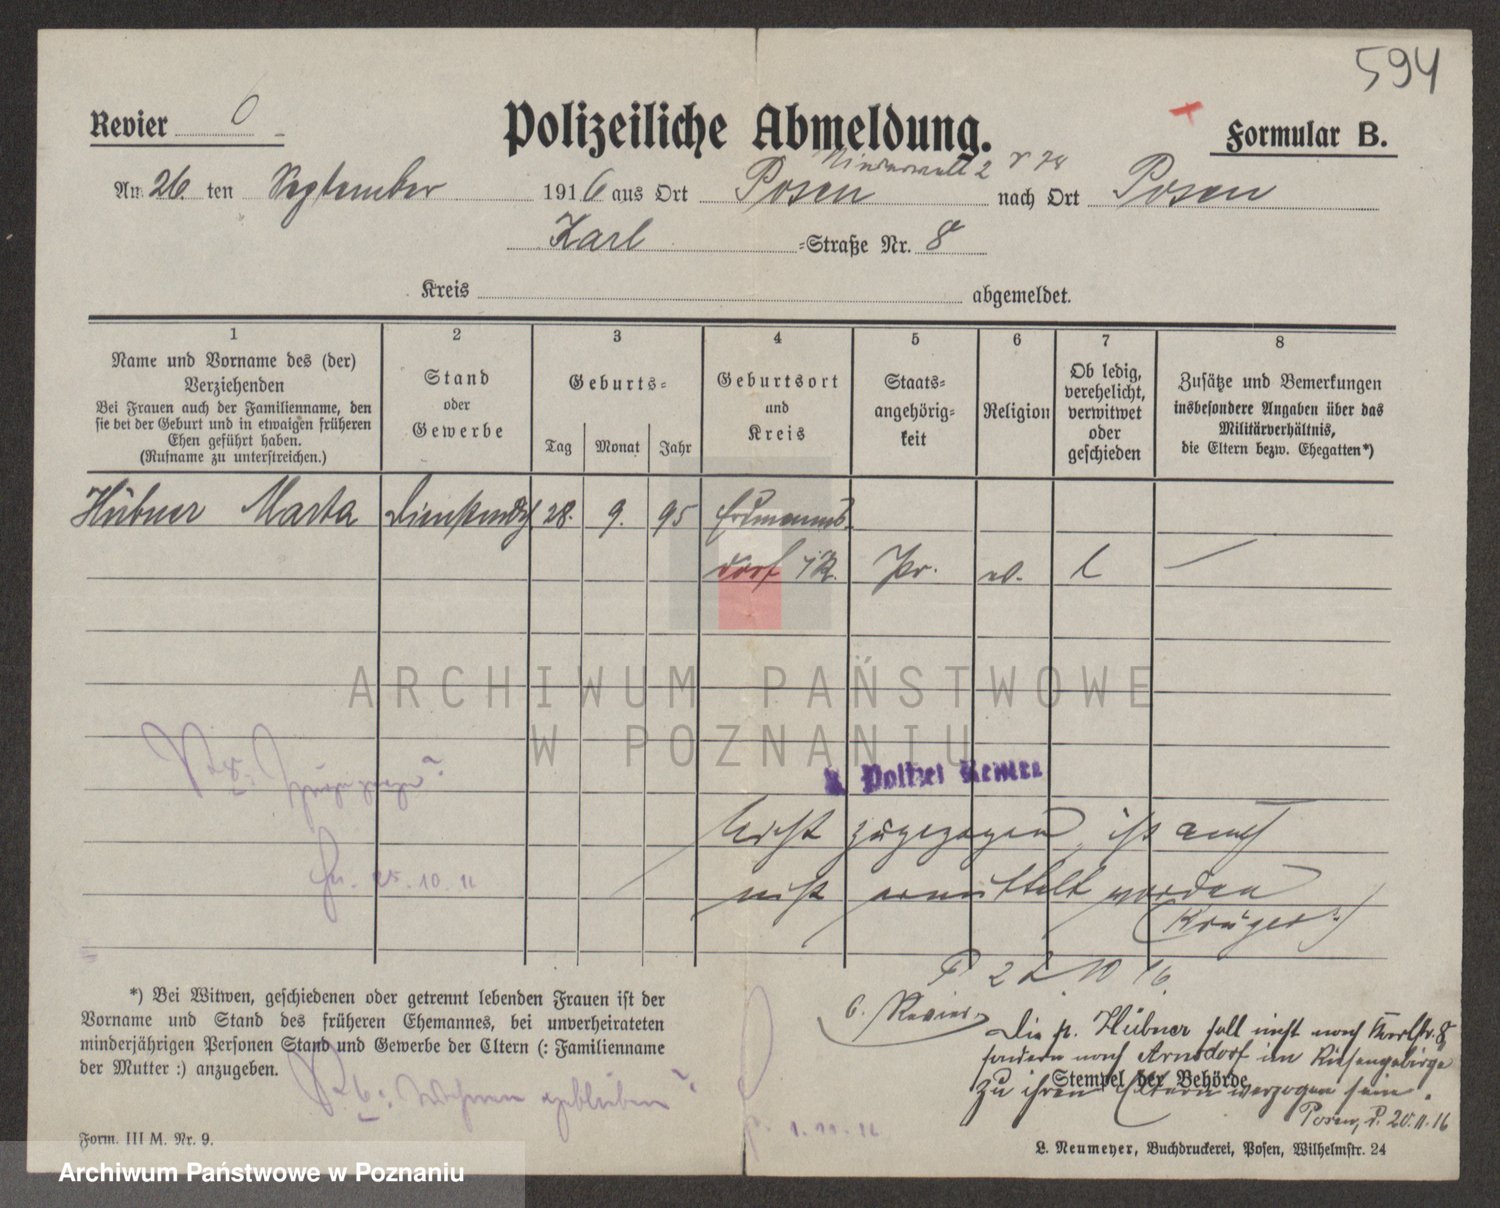 594
Revier 6
Polizeiliche Abmeldung.
Formular B.
Niederwall 2
Am 26. ten September 1916 aus Ort Posen nach Ort Posen
Karl -Straße Nr. 8
Kreis abgemeldet.
1 2 3 4 5 6 7 8
Name und Vorname des (der) Verziehenden
Bei Frauen auch der Familienname, den
sie bei der Geburt und in etwaigen früheren
Ehen geführt haben.
(Rufname zu unterstreichen.)
Stand
oder
Gewerbe
Geburts-
Tag Monat Jahr
Geburtsort
und
Kreis
Staats-
angehörig-
keit
Religion
Ob ledig,
verehelicht,
verwitwet
oder
geschieden
Zusätze und Bemerkungen
insbesondere Angaben über das
Militärverhältnis,
die Eltern bezw. Ehegatten*)
Hübner Marta Dienstmdch 28. 9. 95 Erdmanns
dorf i/R. Pr. ev. l
ARCHIWUM PAŃSTWOWE
W POZNANIU
Polizei Revier
Nicht zugezogen, ist auch
nicht ermittelt worden
Krüger
25.10.16
P 22.10.16
6. Revier
*) Bei Witwen, geschiedenen oder getrennt lebenden Frauen ist der
Vorname und Stand des früheren Ehemannes, bei unverheirateten
minderjährigen Personen Stand und Gewerbe der Eltern (: Familienname
der Mutter :) anzugeben.
Die p. Hübner soll nicht nach Karlstr. 8
sondern nach Arnsdorf im Riesengebirge
Stempel der Behörde
zu ihren Eltern verzogen sein.
Posen, d. 20.11.16
R. 6: Wohnen geblieben?
1.11.16
Form. III M. Nr. 9.
L. Neumeyer, Buchdruckerei, Posen, Wilhelmstr. 24
Archiwum Państwowe w Poznaniu